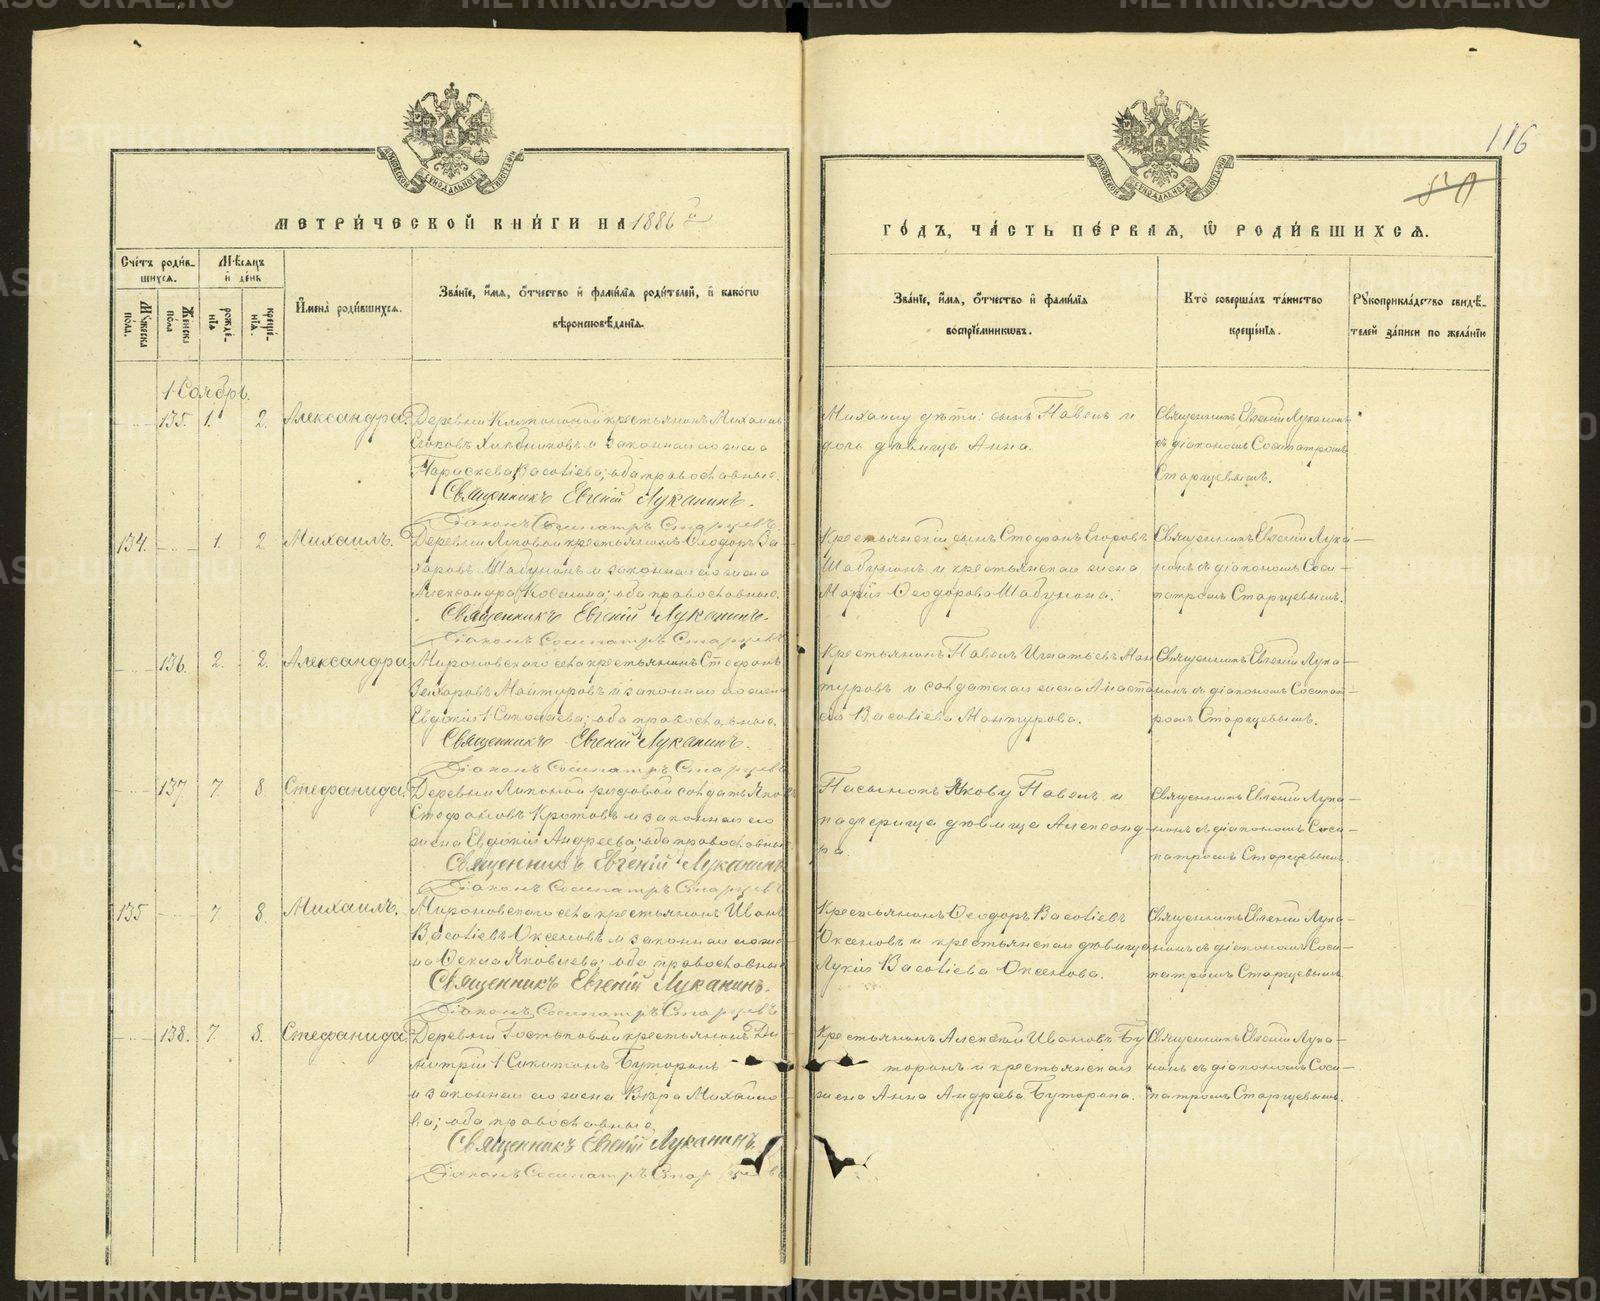 116
50
МЕТРИ́ЧЕСКОЙ КНИ́ГИ НА 1886й
ГО́ДЪ, ЧА́СТЬ ПЕ́РВАЯ, Ѡ РОДИ́ВШИХСЯ.
Сче́тъ роди́в-
шихся.
Му́жеска пола.
Же́нска по́ла
Мѣ́сяцъ и́ де́нь
рожде́нїя
креще́нїя.
И҆мена̀ роди́вшихся.
Зва́нїе, и҆́мя, о҆́тчество и҆ фами́лїя роди́телей, и҆ како́гѡ
вѣроисповѣ́данїя.
Зва́нїе, и҆́мя, о҆́тчество и҆ фами́лїя
воспрїе́мникѡвъ.
Кто̀ соверша́лъ та́инство
креще́нїя.
Рꙋкоприкла́дство свидѣ́-
телей за́писи по жела́нїю
Ноябрь.
135. 1. 2. Александра.
Деревни крестьянинъ Михаилъ
и законная его жена
Параскева Василіева; оба православные.
Священникъ Евгеній Луканинъ.
Діаконъ Сосипатръ Старцевъ.
Михаилу дѣти: сынъ Павелъ и
дочь дѣвица Анна.
Священникъ Евгеній Луканинъ
съ діакономъ Сосипатромъ
Старцевымъ.
134. 1. 2. Михаилъ.
Деревни Липовой крестьянинъ Ѳеодоръ За-
харовъ Шабунинъ и законная его жена
Александра Косьмина; оба православные.
Священникъ Евгеній Луканинъ.
Діаконъ Сосипатръ Старцевъ
Крестьянскій сынъ Стефанъ Егоровъ
Шабунинъ и крестьянская жена
Марія Ѳеодорова Шабунина.
Священникъ Евгеній Лука-
нинъ съ діакономъ Соси-
патромъ Старцевымъ.
136. 2. 2. Александра
Мироновскаго села крестьянинъ Стефанъ
Захаровъ Мантуровъ и законная его жена
Евдокія Николаева; оба православные.
Священникъ Евгеній Луканинъ.
Діаконъ Сосипатръ Старцевъ
Крестьянинъ Павелъ Игнатьевъ Ман-
туровъ и солдатская жена Анаста-
сія Василіева Мантурова.
Священникъ Евгеній Лука-
нинъ съ діакономъ Сосипат-
ромъ Старцевымъ.
137 7 8 Стефанида.
Деревни Липовой рядовой солдатъ Яковъ
Стефановъ Кротовъ и законная его
жена Евдокія Андреева; оба православные
Священникъ Евгеній Луканинъ
Діаконъ Сосипатръ Старцевъ
Пасынокъ Якову Павелъ и
падчерица дѣвица Александ-
ра.
Священникъ Евгеній Лука-
нинъ съ діакономъ Соси-
патромъ Старцевымъ.
135 7. 8. Михаилъ.
Мироновскаго села крестьянинъ Иванъ
Василіевъ Оксеновъ и законная его же-
на Ѳекла Яковлева; оба православные
Священникъ Евгеній Луканинъ.
Діаконъ Сосипатръ Старцевъ
Крестьянинъ Ѳеодоръ Василіевъ
Оксеновъ и крестьянская дѣвица
Лукія Василіева Оксенова.
Священникъ Евгеній Лука-
нинъ съ діакономъ Соси-
патромъ Старцевымъ
138. 7. 8. Стефанида
Деревни крестьянинъ Ди-
митрій Никитинъ Буторинъ
и законная его жена Вѣра Михайло-
ва; оба православные.
Священникъ Евгеній Луканинъ.
Діаконъ Сосипатръ Старцевъ
Крестьянинъ Алексѣй Ивановъ Бу-
торинъ и крестьянская
жена Анна Андреева Буторина.
Священникъ Евгеній Лука-
нинъ съ діакономъ Соси-
патромъ Старцевымъ.
METRIKI.GASO-URAL.RU